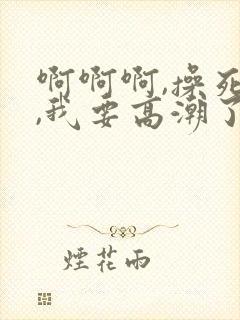 啊啊啊,操死
,我要高潮了
煙花雨